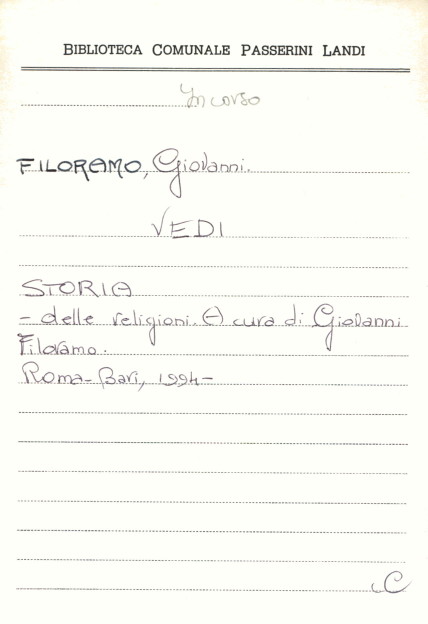 BIBLIOTECA COMUNALE PASSERINI LANDI
In corso
FILORAMO, Giovanni.
VEDI
STORIA
- delle religioni. A cura di Giovanni
Filoramo.
Roma-Bari, 1994-
C